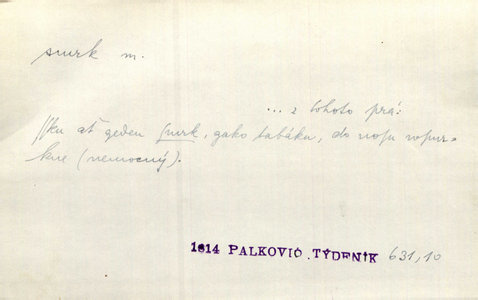 smrk m.
... z tohoto prá:
ssku ať geden smrk, gako tabáku, do nosu wpur-
kne (nemocný).
1814 PALKOVIČ .TÝDENÍK 631,10